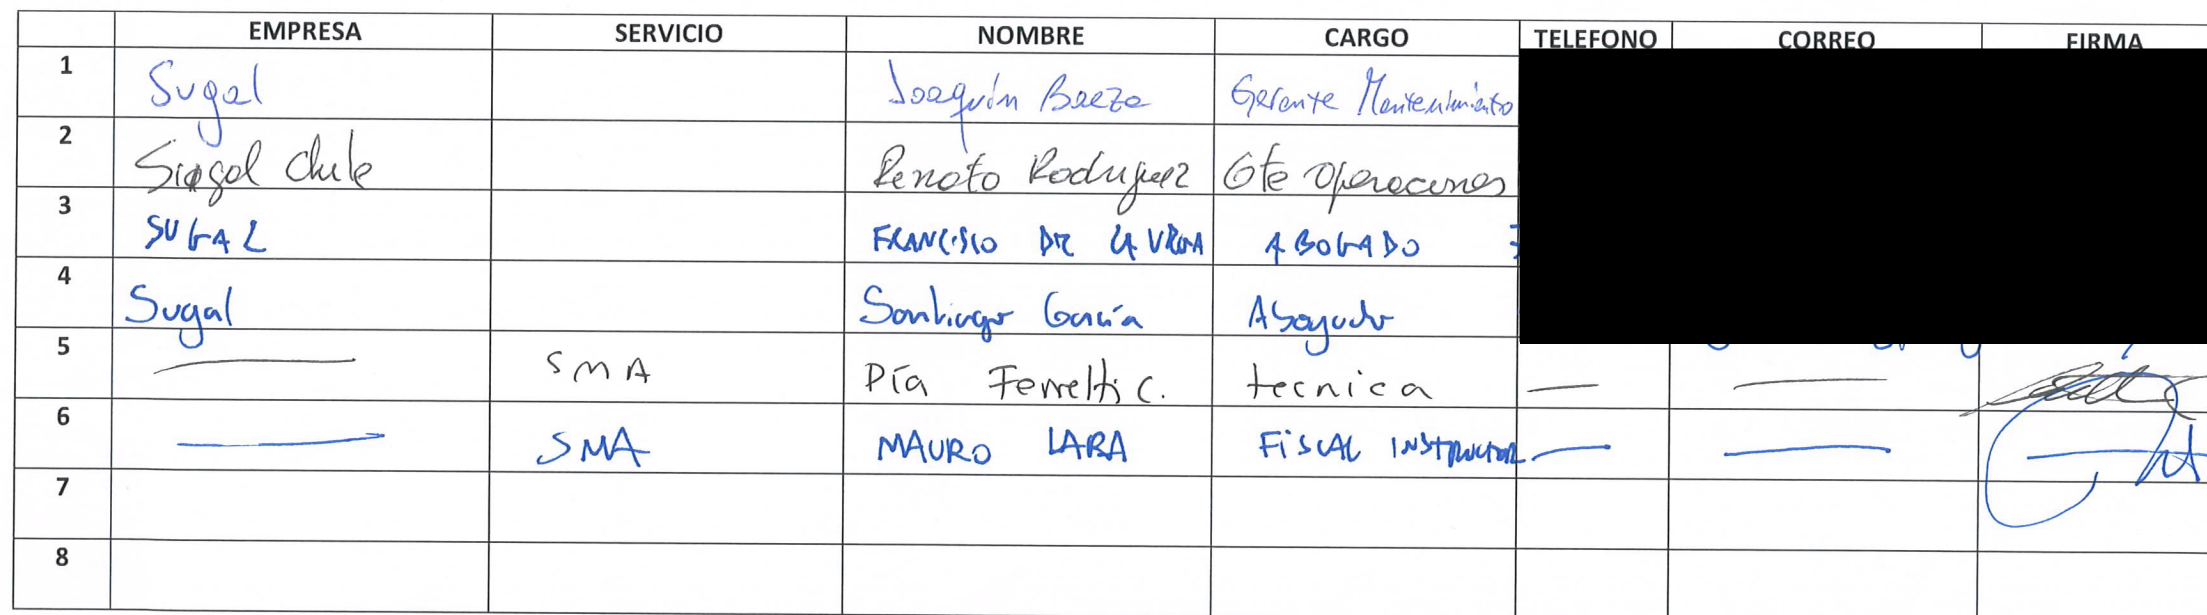 EMPRESA SERVICIO NOMBRE CARGO TELEFONO CORREO FIRMA
1 Sugal Joaquín Baeza Gerente Mantenimiento
2 Sugal Chile Renato Rodriguez Gte Operaciones
3 SUGAL FRANCISCO DE LA ABOGADO
4 Sugal Santiago García Abogado
5 — SMA Pía C. tecnica — —
6 — SMA MAURO LARA FISCAL INSTRUCTOR — —
7
8